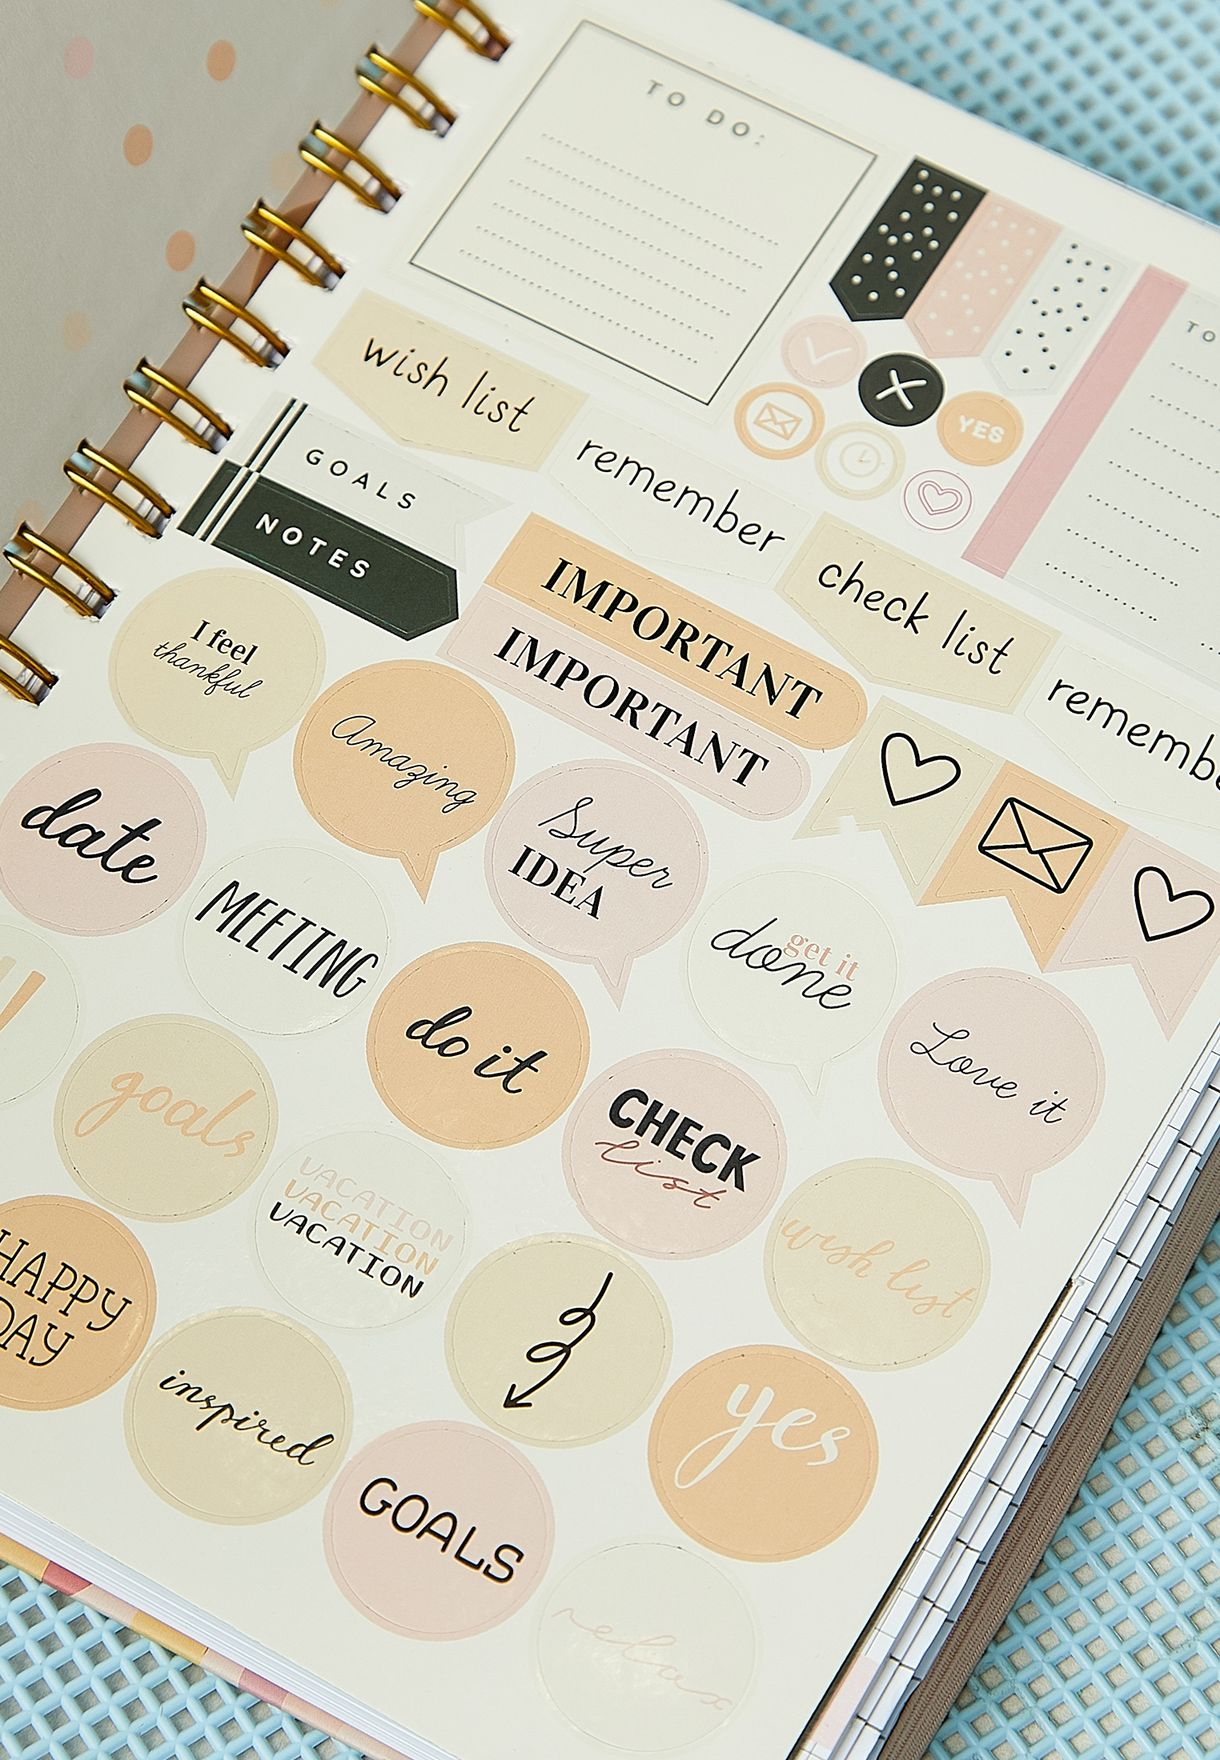 TO DO:
TO
wish list
remember
YES
GOALS
NOTES
check list
IMPORTANT
IMPORTANT
I feel
thankful
Amazing
date
Super
IDEA
MEETING
get it
done
do it
Love it
goals
CHECK
list
VACATION
VACATION
VACATION
wish list
HAPPY
DAY
inspired
yes
GOALS
relax